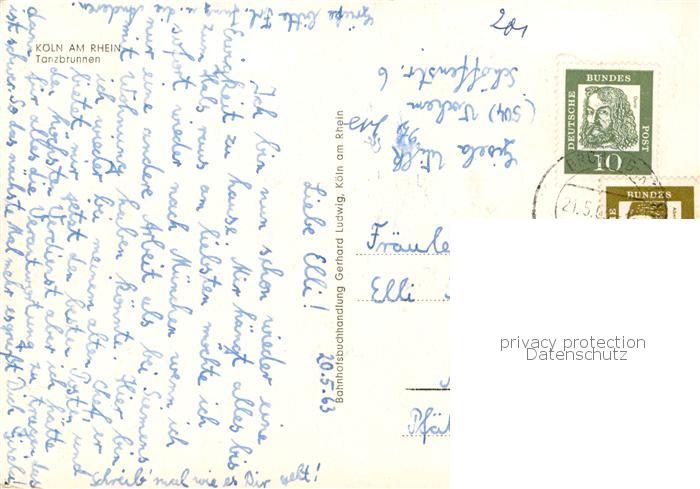 KÖLN AM RHEIN
Tanzbrunnen
20.5.63
Liebe Elli!
Ich bin nun schon wieder eine
Ewigkeit zu hause. Mir hängt alles bis
zum Hals raus am liebsten möchte ich
sofort wieder nach München wenn ich
nur eine andere Arbeit als bei Siemens
mit Wohnung haben könnte. Hier bin
ich wieder bei meinem alten Chef, er
bietet mir jetzt den besten Posten und
den höchsten Verdienst aber ich hätte
dann für alles die Verantwortung zu tragen das
ist schwer. So das nächste Mal mehr es grüßt Dich Gisela!
Schreib' mal wie es Dir geht!
Grüße bitte Frl. Jung u. die Anderen.
Bahnhofsbuchhandlung Gerhard Ludwig, Köln am Rhein
Gisela
(504)
Schöffenstr. 6
201
DEUTSCHE
BUNDES
POST
Dürer
10
BUNDES
21.5.6
Fräule
Elli
Pfäl
privacy protection
Datenschutz